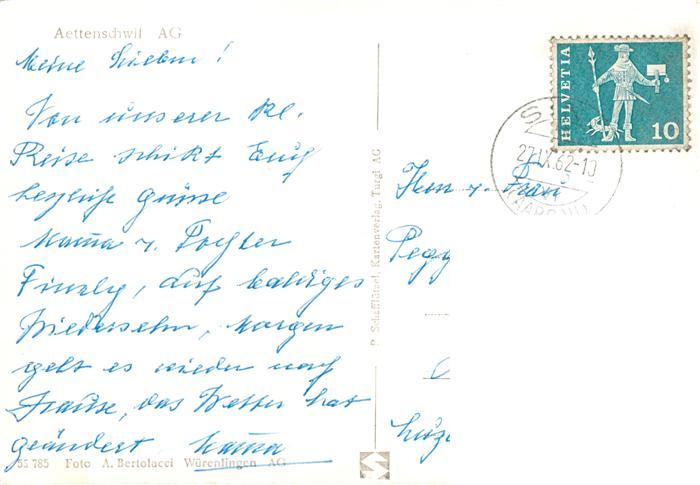 Aettenschwil AG
Meine Lieben!
Von unserer kl.
Reise schikt Euch
herzliche Grüsse
Mama u. Tochter
Finzly, auf baldiges
Wiedersehn, Morgen
geht es wieder nach
Hause, das Wetter hat
geändert. Mama
55 785 Foto A. Bertolacci Würenlingen AG
P. Schafflützel, Kartenverlag, Turgi AG
HELVETIA
10
27.IX.62-10
(AARGAU)
Herr u. Frau
Pegg
Luze